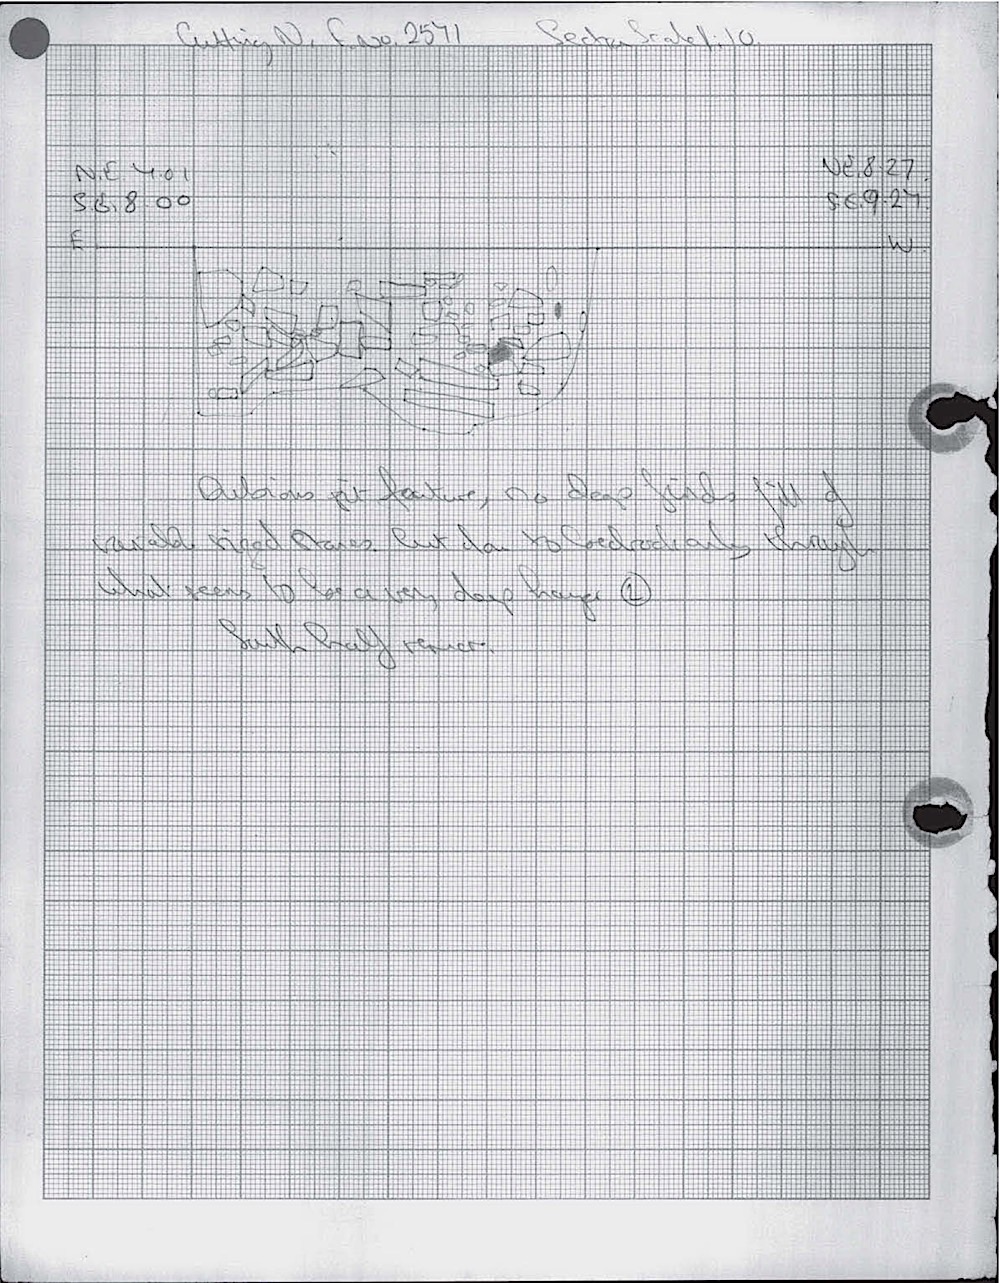 Cutting N. F. No. 2571 Section Scale 1:10.
N.E. 4.01
S.E. 8.00
NE. 8.27.
SE. 9.27.
E
W.
pit feature, no deep finds fill of
variable sized stones. Cut down to through
what seems to be a very deep
South half